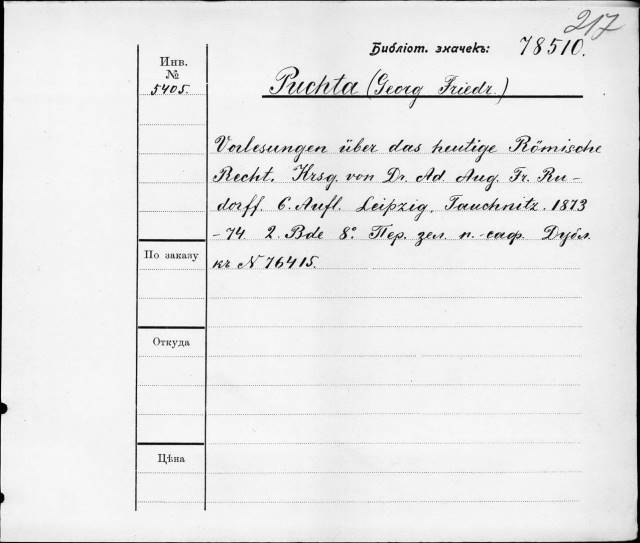 217
Библіот. значекъ: 78510.
Инв.
№
5405.
Puchta (Georg Friedr.)
Vorlesungen über das heutige Römische
Recht. Hrsg. von Dr. Ad. Aug. Fr. Ru-
dorff. 6. Aufl. Leipzig, Tauchnitz. 1873
-74. 2. Bde 8º. Пер. зел. п.-саф. Дубл.
къ N 76415.
По заказу
Откуда
Цѣна